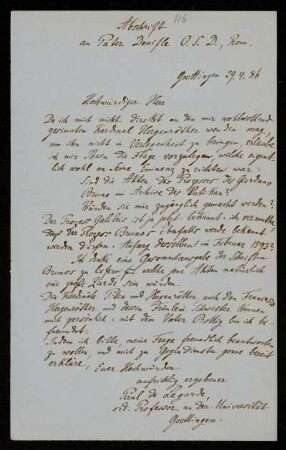 116
Abschrift
an Pater Denifle O. S. D., Rom.
Goettingen 29.4.86
Hochwürdiger Herr
Da ich mich nicht direkt an den mir wohlwollend
gesinnten Kardinal Hergenröther wenden mag,
um ihn nicht in Verlegenheit zu bringen, erlaube
ich mir Ihnen die Frage vorzulegen, welche eigent-
lich wohl an seine Eminenz zu richten war:
Sind die Akten des Prozesses des Giordano
Bruno im Archive des Vatikan?
Würden sie mir zugänglich gemacht werden?
Der Prozess Galileis ist ja jetzt bekannt: ich vermuthe,
dass der Prozess Brunos ebenfalls werde bekannt
werden dürfen: Anfang desselben im Februar 1593?
Ich denke eine Gesammtausgabe der Schriften
Brunos zu liefern für welche jene Akten natürlich
eine große Zierde sein würden.
Die Kardinäle Pitra und Hergenröther, auch den
Hergenröther und dessen Fräulein Schwester kennen
mich persönlich: mit dem Vater Bollig bin ich be-
freundet.
Indem ich bitte, meine Frage freundlich beantworten
zu wollen, und mich zu Gegendiensten gerne bereit
erkläre, Euer Hochwürden
aufrichtig ergebener
Paul de Lagarde,
ord. Professor an der Universität
Goettingen.